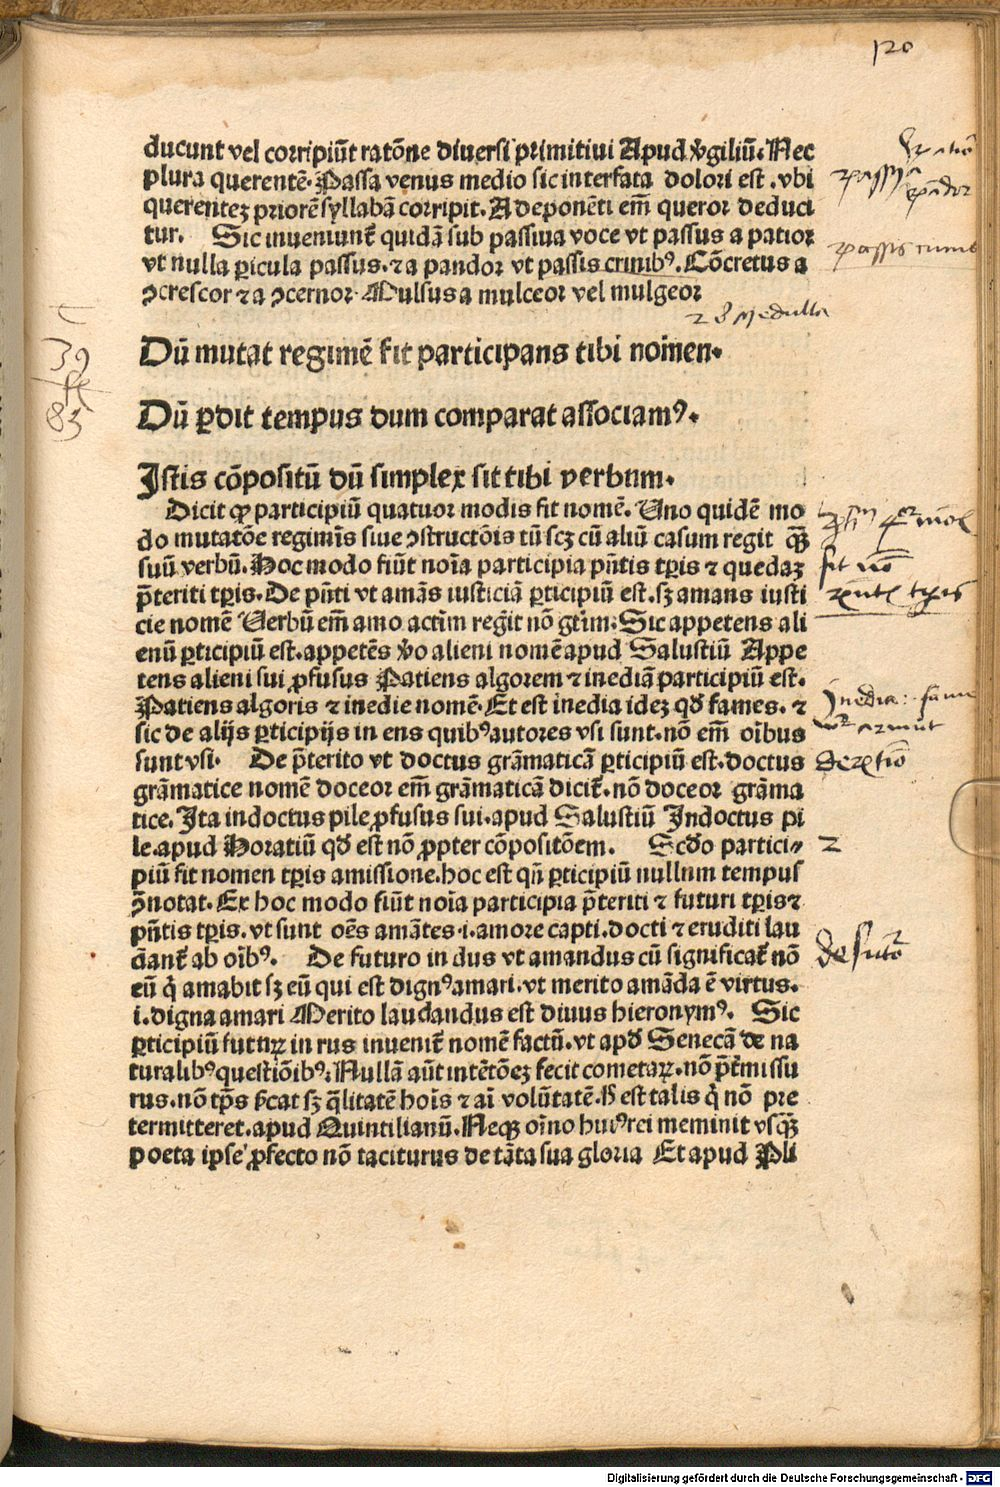 120
ducunt vel corripiūt ratōne diuersi primitiui Apud v̆giliū. Nec
plura querentē. Passa venus medio sic interfata dolori est. vbi
querentez priorē syllabā corripit. A deponēti em̄ queror deduci
tur. Sic inueniunt᷑ quidā sub passiua voce vt passus a patior
vt nulla ꝑicula passus. ⁊ a pandor vt passis crinibꝰ. Cōcretus a
ꝯcrescor ⁊ a ꝯcernor. Mulsus a mulceor vel mulgeor
Dū mutat regimē fit participans tibi nomen.
Dū ꝑdit tempus dum comparat associamꝰ.
Istis cōpositū dū simplex sit tibi verbum.
Dicit ꝙ participiū quatuor modis fit nomē. Uno quidē mo
do mutatōe regimīs siue ꝯstructōis tū scꝫ cū aliū casum regit qꝫ̄
suū verbū. Hoc modo fiūt noīa participia pn̄tis tꝑis ⁊ quedaz
p̄teriti tꝑis. De pn̄ti vt amās iusticiā ꝑticipiū est. sꝫ amans iusti
cie nomē Uerbū em̄ amo actīm regit nō gtīm. Sic appetens ali
enū ꝑticipiū est. appetēs v̆o alieni nomē apud Salustiū Appe
tens alieni sui ꝓfusus Patiens algorem ⁊ inediā participiū est.
Patiens algoris ⁊ inedie nomē. Et est inedia idez qd̄ fames. ⁊
sic de alijs ꝑticipijs in ens quibꝰ autores vsi sunt. nō em̄ oībus
sunt vsi. De p̄terito vt doctus grāmaticā ꝑticipiū est. doctus
grāmatice nomē doceor em̄ grāmaticā dicit᷑. nō doceor grāma
tice. Ita indoctus pile ꝓfusus sui. apud Salustiū Indoctus pi
le. apud Horatiū qd̄ est nō ꝓpter cōpositōem. Scd̄o partici⸗
piū fit nomen tꝑis amissione. hoc est qn̄ ꝑticipiū nullum tempus
ꝯnotat. Ex hoc modo fiūt noīa participia p̄teriti ⁊ futuri tꝑis ⁊
pn̄tis tꝑis. vt sunt oēs amātes .i. amore capti. docti ⁊ eruditi lau
dant᷑ ab oībꝰ. De futuro in dus vt amandus cū significat᷑ nō
eū q̇ amabit sꝫ eū qui est dignꝰ amari. vt merito amāda ē virtus.
i. digna amari Merito laudandus est diuus hieronymꝰ. Sic
ꝑticipiū futuꝝ in rus inuenit᷑ nomē factū. vt apd̄ Senecā de na
turalibꝰ questiōibꝰ: Nullā aūt intētōez fecit cometaꝝ. nō p̄t᷑missu
rus. nō tp̄s v̆cat sꝫ q̄litatē hoīs ⁊ aī volūtatē. h̄ est talis q̇ nō pre
termitteret. apud Quintilianū. Neqꝫ oīno huiꝰ rei meminit vsqꝫ̄
poeta ipse ꝓfecto nō taciturus de tāta sua gloria Et apud Pli
passis crinib
⁊ Medulla
39
83
Inedia: fam
2
Digitalisierung gefördert durch die Deutsche Forschungsgemeinschaft - DFG